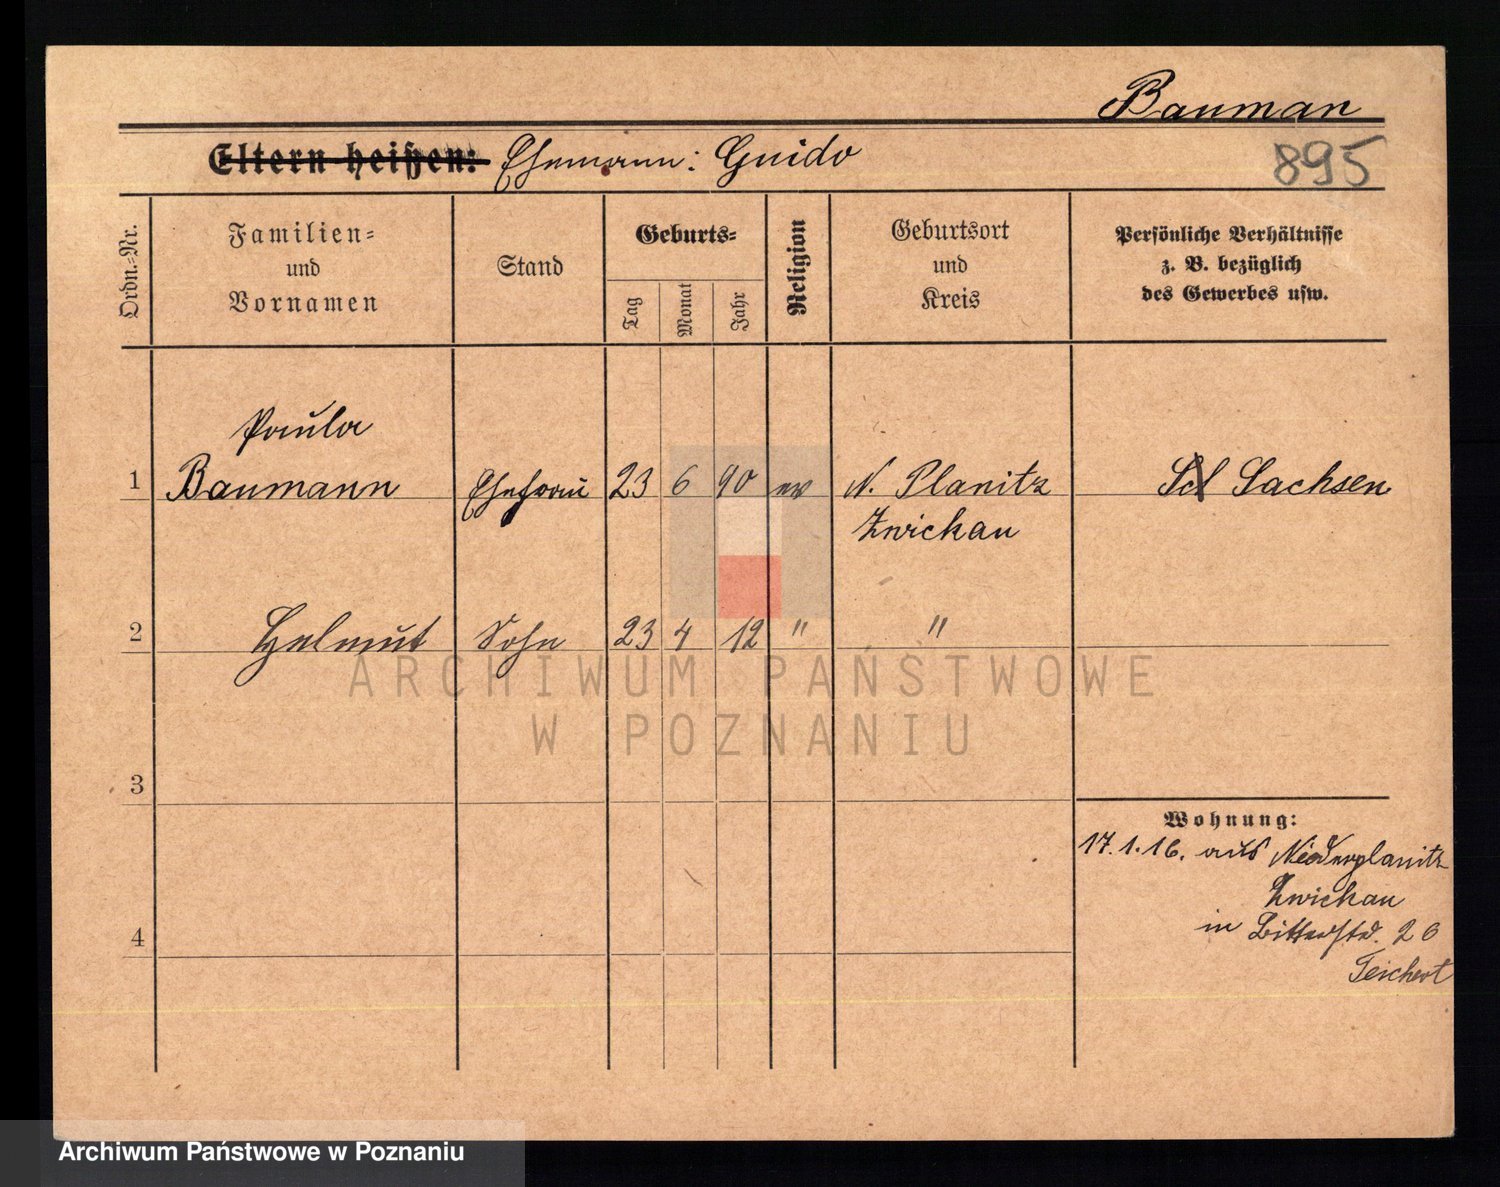 Bauman
Eltern heißen: Ehemann: Guido
895
Ordn.-Nr.
Familien-
und
Vornamen
Stand
Geburts-
Tag
Monat
Jahr
Religion
Geburtsort
und
Kreis
Persönliche Verhältnisse
z. B. bezüglich
des Gewerbes usw.
Paula
1 Baumann Ehefrau 23 6 90 ev N. Planitz Sachsen
Zwickau
2 Helmut Sohn 23 4 12 " "
ARCHIWUM PAŃSTWOWE
W POZNANIU
3
Wohnung:
17.1.16. aus Niederplanitz
Zwickau
4
in 26
Teichert
Archiwum Państwowe w Poznaniu